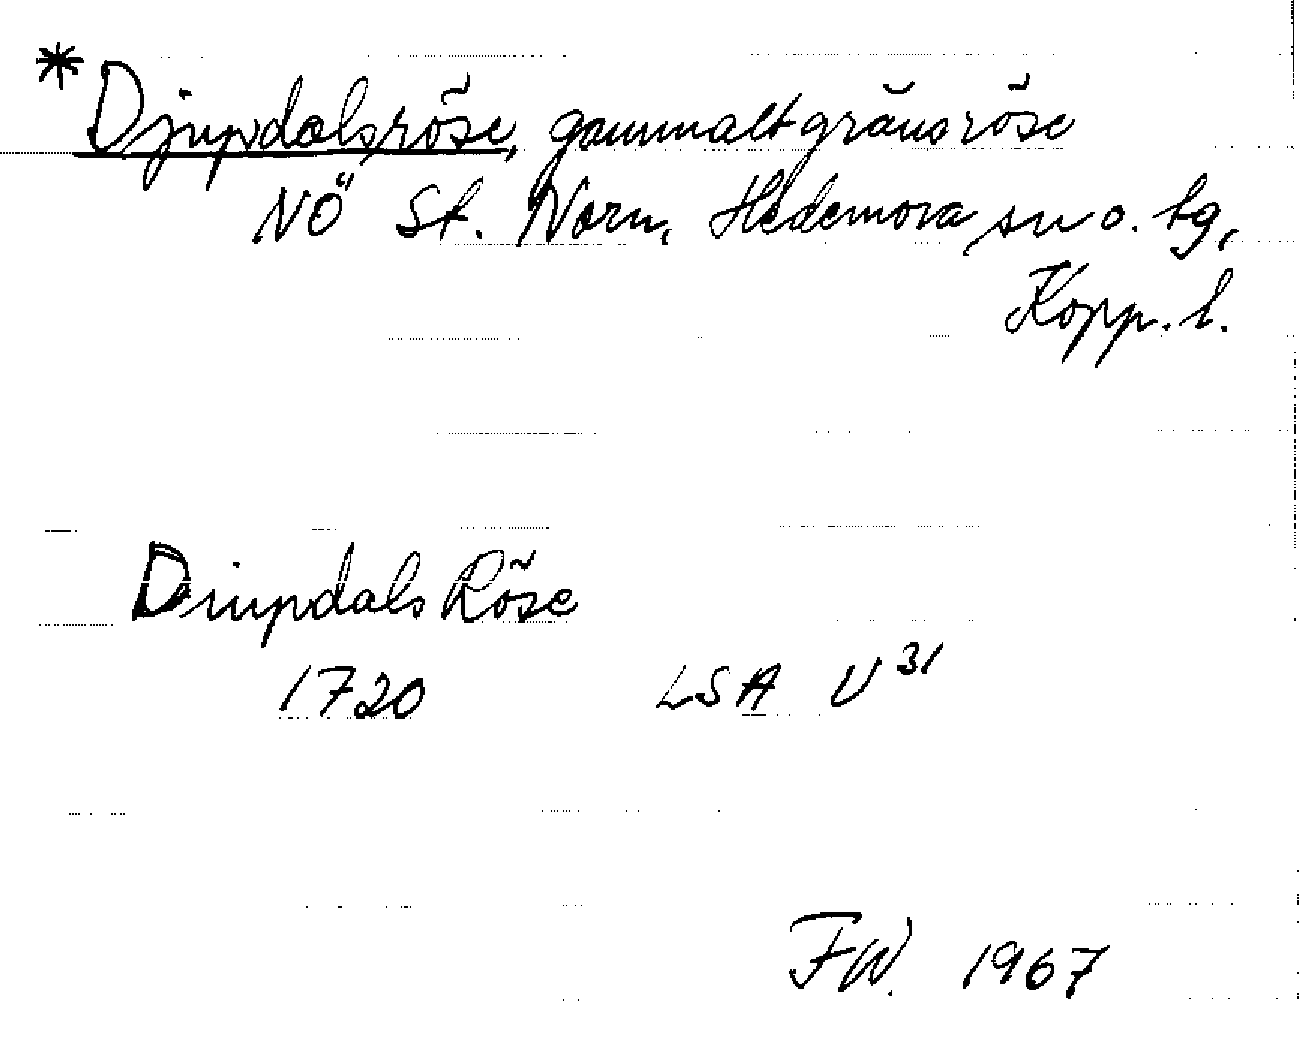 *Djupdalsröse, gammalt gränsröse
NÖ St. Norn, Hedemora sn o. tg,
Kopp. l.
Diupdals Röse
1720 LSA U 31
FW. 1967